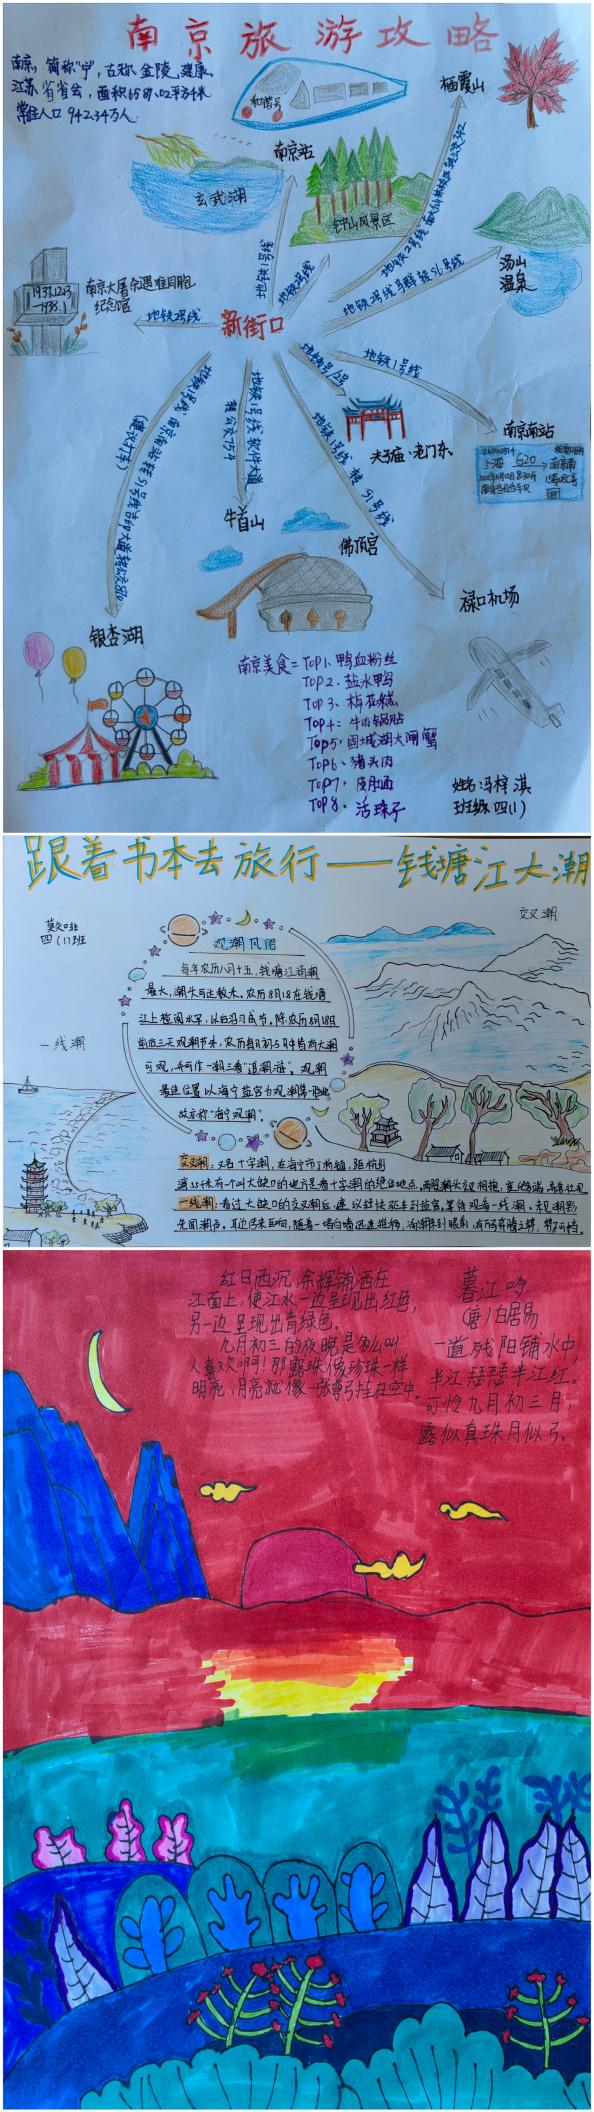 南京旅游攻略
南京，简称"宁"，古称金陵、建康，
江苏省省会，面积6587.02平方千米
常住人口942.34万人
和谐号
栖霞山
南京站
玄武湖
钟山风景区
汤山
温泉
1937.12.13
-1938.1
南京大屠杀遇难同胞
纪念馆
地铁2号线
新街口
地铁1号线
地铁2号线
地铁2号线马群转S6号线
地铁1号线
地铁1号线 转 S1号线
地铁1号线 软件大道
转公交754
(建议打车)
夫子庙、老门东
南京南站
G20
南京南
牛首山
佛顶宫
禄口机场
银杏湖
南京美食=TOP1、鸭血粉丝
TOP2、盐水鸭
TOP3、梅花糕
TOP4=牛肉锅贴
TOP5、固城湖大闸蟹
TOP6、猪头肉
TOP7、皮肚面
TOP8、活珠子
姓名:冯梓淇
班级:四(1)
跟着书本去旅行——钱塘江大潮
四(1)班
交叉潮
观潮风俗
每年农历八月十五,钱塘江涌潮
最大,潮头可达数米。农历8月18在钱塘
江上检阅水军,以后沿习成节。除农历8月18日
前后三天观潮节外,农历每月初与月中皆有大潮
可观,并可作一潮三看"追潮游"。观潮
最佳位置以海宁盐官为观潮第一胜地,
故亦称"海宁观潮"。
一线潮
交叉潮:又名十字潮,在海宁市丁桥镇,距
一线潮:看过大缺口的交叉潮后,建议赶快驱车到盐官,等待观看一线潮。未见潮影
先闻潮声。耳边传来巨响,随着一堵白墙迅速推移,涌潮来到眼前,
红日西沉,余辉铺洒在
江面上,使江水一边呈现出红色,
另一边呈现出青绿色。
九月初三的夜晚是多么叫
人喜欢啊!那露珠像珍珠一样
明亮,月亮就像一张弯弓挂在空中。
暮江吟
(唐)白居易
一道残阳铺水中,
半江瑟瑟半江红。
可怜九月初三月,
露似真珠月似弓。